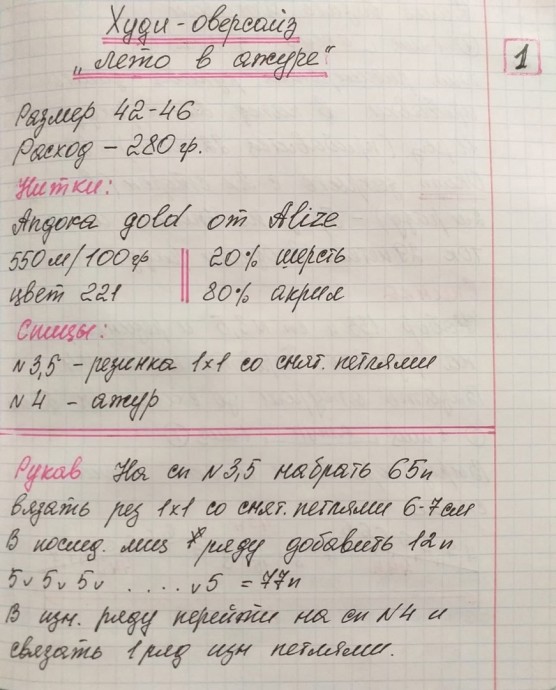 Худи-оверсайз
„Лето в ажуре“
1
Размер 42-46
Расход – 280 гр.
Нитки:
Ангора gold от Alize
550м/100гр || 20% шерсть
цвет 221 || 80% акрил
Спицы:
N3,5 – резинка 1x1 со снят. петлями
N4 – ажур
Рукав На сп N3,5 набрать 65п
вязать рез 1x1 со снят. петлями 6-7см
В послед. лиц ряду добавить 12п
5v 5v 5v ..... v5 = 77п
В изн. ряду перейти на сп N4 и
связать 1 ряд изн петлями.